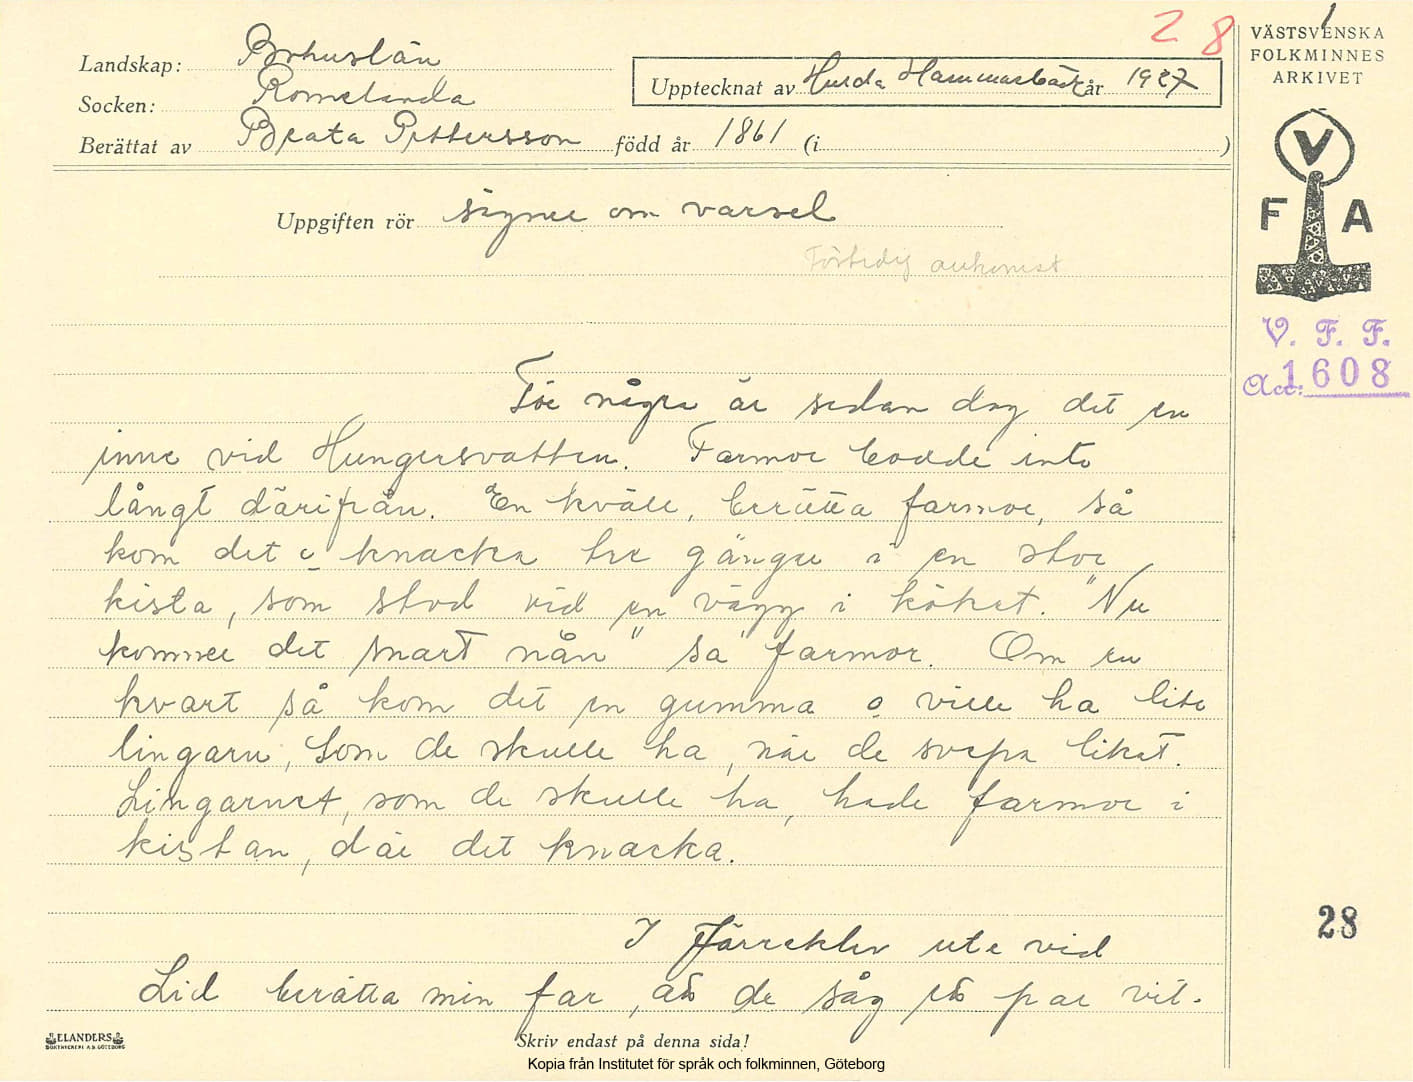 28
VÄSTSVENSKA
FOLKMINNES
ARKIVET
Landskap: Bohuslän
Socken: Romelanda
Upptecknat av Hulda Hammarbäck år 1927
Berättat av Beata Pettersson född år 1861 (i )
Uppgiften rör Sägner om varsel
Förtidig ankomst
V
F A
V. F. F.
Acc: 1608
För några år sedan dog det en
inne vid Hungersvatten. Farmor bodde inte
långt därifrån. En kväll, berätta farmor, så
kom det o knacka tre gånger i en stor
kista, som stod vid en vägg i köket. "Nu
kommer det snart nån" sa farmor. Om en
kvart så kom det en gumma o ville ha lite
lingarn, som de skulle ha, när de svepa liket.
Lingarnet, som de skulle ha, hade farmor i
kistan, där det knacka.
28
I Färreklev ute vid
Lid berätta min far, att de såg ett par vit-
ELANDERS
BOKTRYCKERI A.B. GÖTEBORG
Skriv endast på denna sida!
Kopia från Institutet för språk och folkminnen, Göteborg